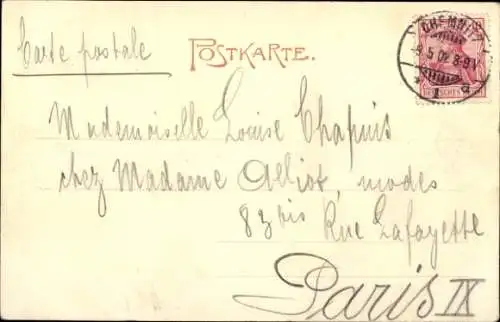 Carte postale
POSTKARTE.
CHEMNITZ
8.5.02. 8-9V.
* 1 d
Mademoiselle Louise Chapuis
chez Madame Alliot, modes
83 bis Rue Lafayette
Paris IX